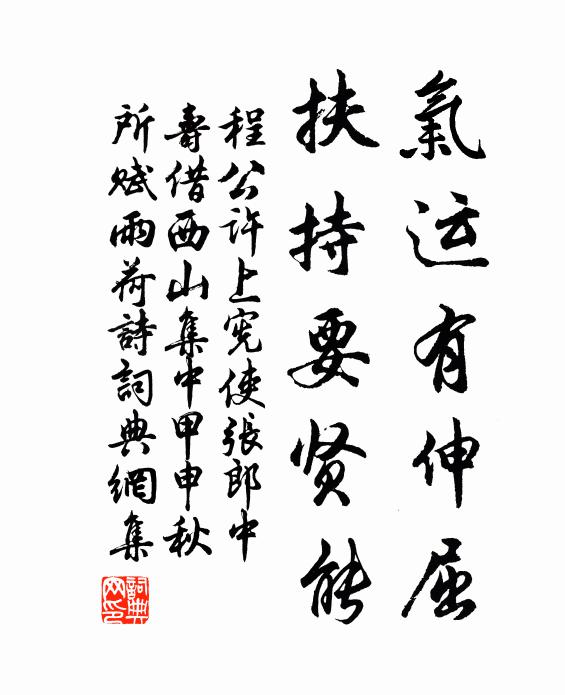 氣运有伸屈
扶持要贤能
程公许上宪使張郎中
壽借西山集中甲申秋
所赋雨荷詩詞典網集
詞典网印